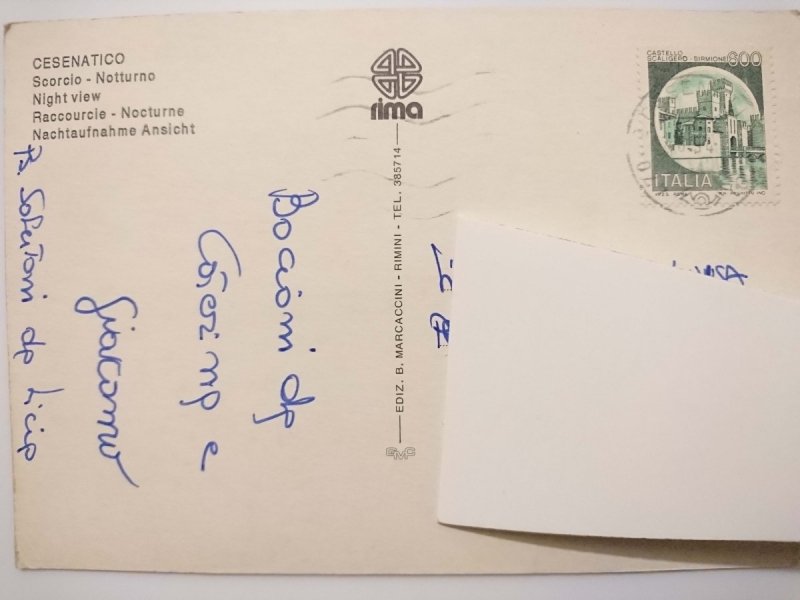 CESENATICO
Scorcio - Notturno
Night view
Raccourcie - Nocturne
Nachtaufnahme Ansicht
rima
EDIZ. B. MARCACCINI - RIMINI - TEL. 385714
GMC
CASTELLO
SCALIGERO - SIRMIONE
600
ITALIA
Bacioni da
e
Giacomo
da Licia